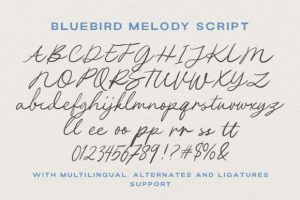 BLUEBIRD MELODY SCRIPT
ABCDEFGHIJKLM
NOPQRSTUVWXYZ
abcdefghijklmnopqrstuvwxyz
ll ee oo pp rr ss tt
0123456789!?#$%&
WITH MULTILINGUAL, ALTERNATES AND LIGATURES
SUPPORT